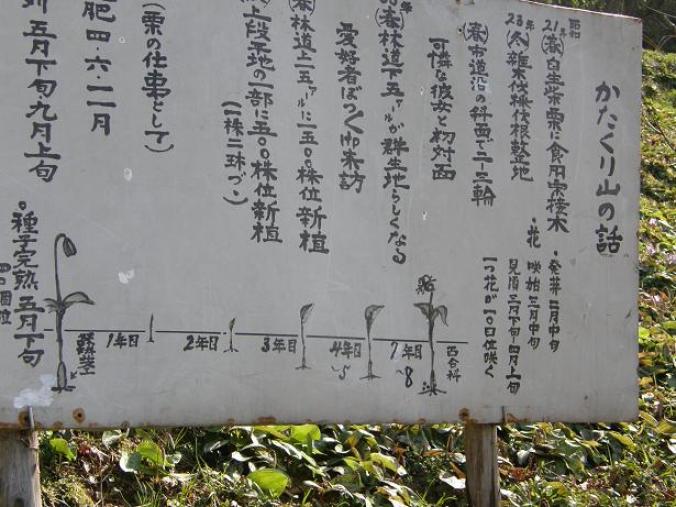 かたくり山の話
昭和
21年(春)自生柴栗に食用栗接木
23年(冬)雑木伐株伐根整地
(春)市道沿の斜面で二－三輪
可憐な彼女と初対面
年(春)林道下五アールが群生地らしくなる
愛好者ぼつ〱来訪
(春)林道上一五アールに一五〇株位新植
上段平地の一部に五〇〇株位新植
(一株二球づつ)
(栗の仕事として)
肥四・六・一一月
五月下旬九月上旬
・花
・発芽 二月中旬
咲始 三月中旬
見頃 三月下旬－四月上旬
一つ花が一〇日位咲く
・種子完熟 五月下旬
1年目
2年目
3年目
4年目
～5
7年目
～8
百合科